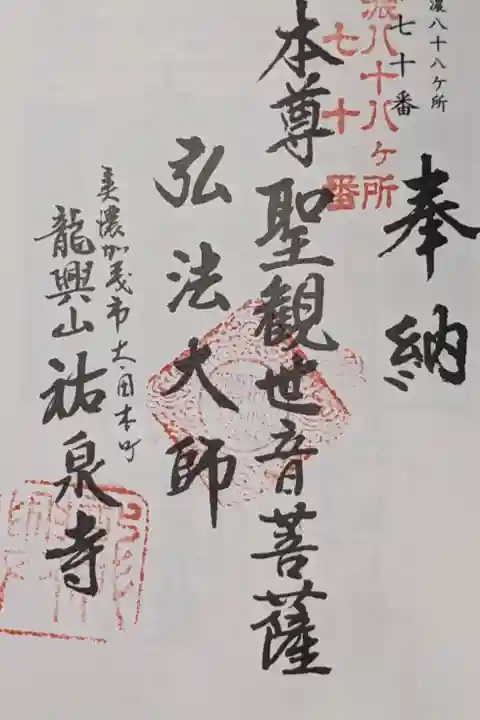 濃八十八ケ所
七十番
濃八十八ヶ所
七十番
奉納
本尊聖観世音菩薩
弘法大師
美濃加茂市太田本町
龍興山祐泉寺